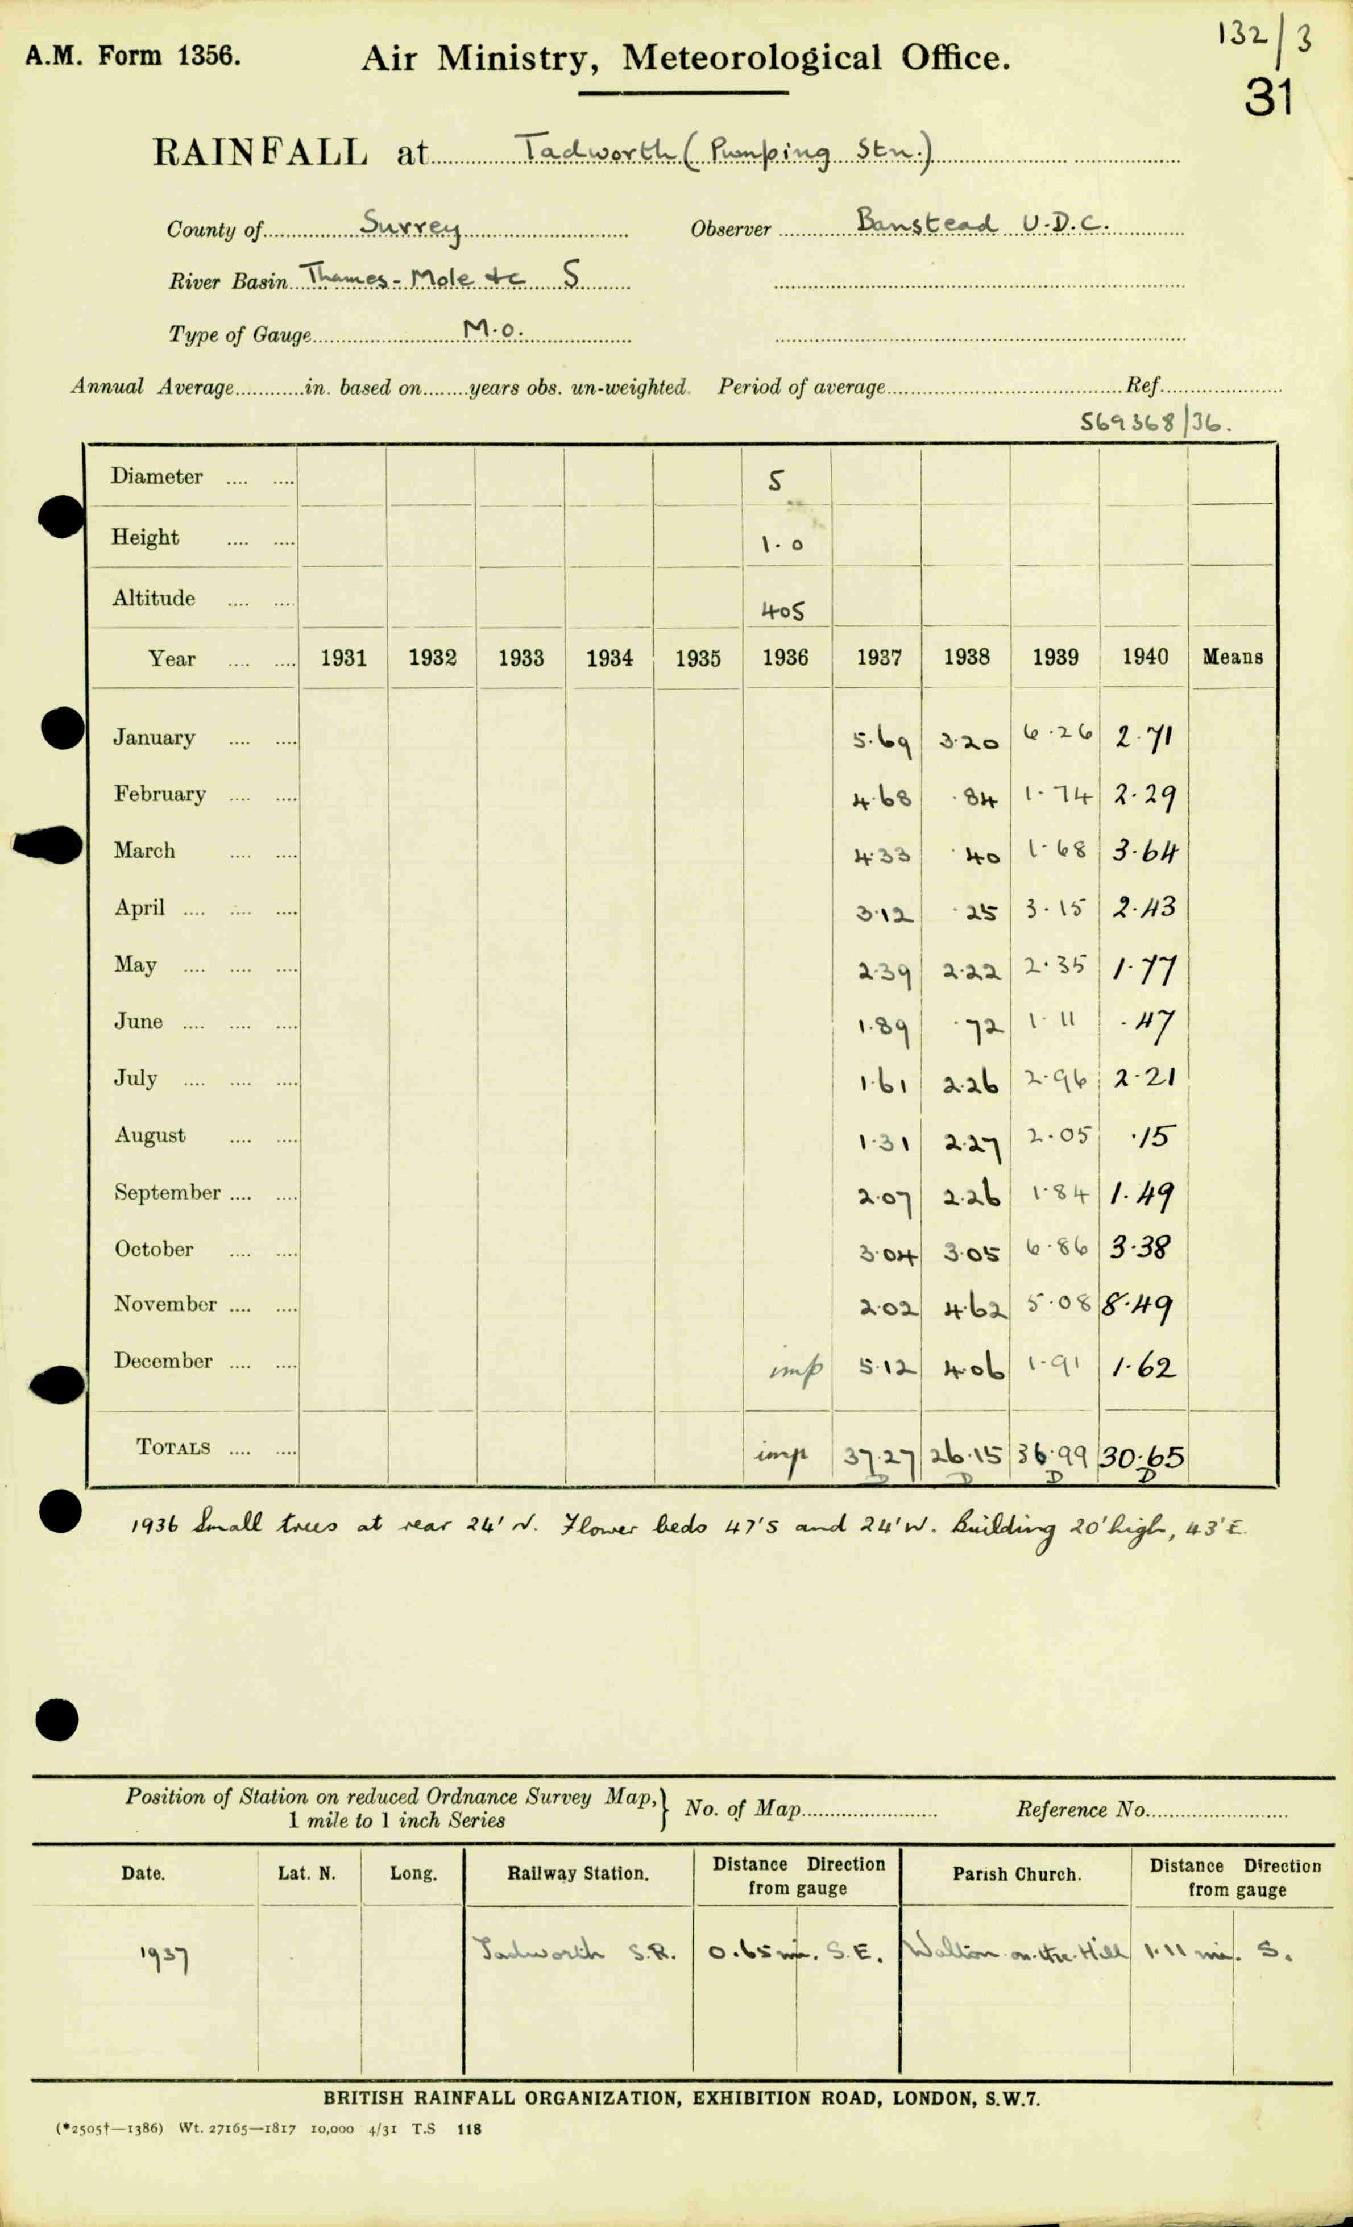 132/3
A.M. Form 1356. Air Ministry, Meteorological Office.
31
RAINFALL at Tadworth (Pumping Stn.)
County of Surrey Observer Banstead U.D.C.
River Basin Thames - Mole &c S
Type of Gauge M.O.
Annual Average in. based on years obs. un-weighted. Period of average Ref.
569368/36.
Diameter 5
Height 1.0
Altitude 405
Year 1931 1932 1933 1934 1935 1936 1937 1938 1939 1940 Means
January 5.69 3.20 6.26 2.71
February 4.68 .84 1.74 2.29
March 4.33 .40 1.68 3.64
April 3.12 .25 3.15 2.43
May 2.39 2.22 2.35 1.77
June 1.89 .72 1.11 .47
July 1.61 2.26 2.96 2.21
August 1.31 2.27 2.05 .15
September 2.07 2.26 1.84 1.49
October 3.04 3.05 6.86 3.38
November 2.02 4.62 5.08 8.49
December imp 5.12 4.06 1.91 1.62
TOTALS imp 37.27 26.15 36.99 30.65
D D D D
1936 Small trees at rear 24' N. Flower beds 47'S and 24'W. Building 20' high, 43'E
Position of Station on reduced Ordnance Survey Map, } No. of Map Reference No.
1 mile to 1 inch Series
Date. Lat. N. Long. Railway Station. Distance Direction from gauge Parish Church. Distance Direction from gauge
1937 Tadworth S.R. 0.65 mi. S.E. Walton-on-the-Hill 1.11 mi. S.
BRITISH RAINFALL ORGANIZATION, EXHIBITION ROAD, LONDON, S.W.7.
(*2505†—1386) Wt. 27165—1817 10,000 4/31 T.S 118